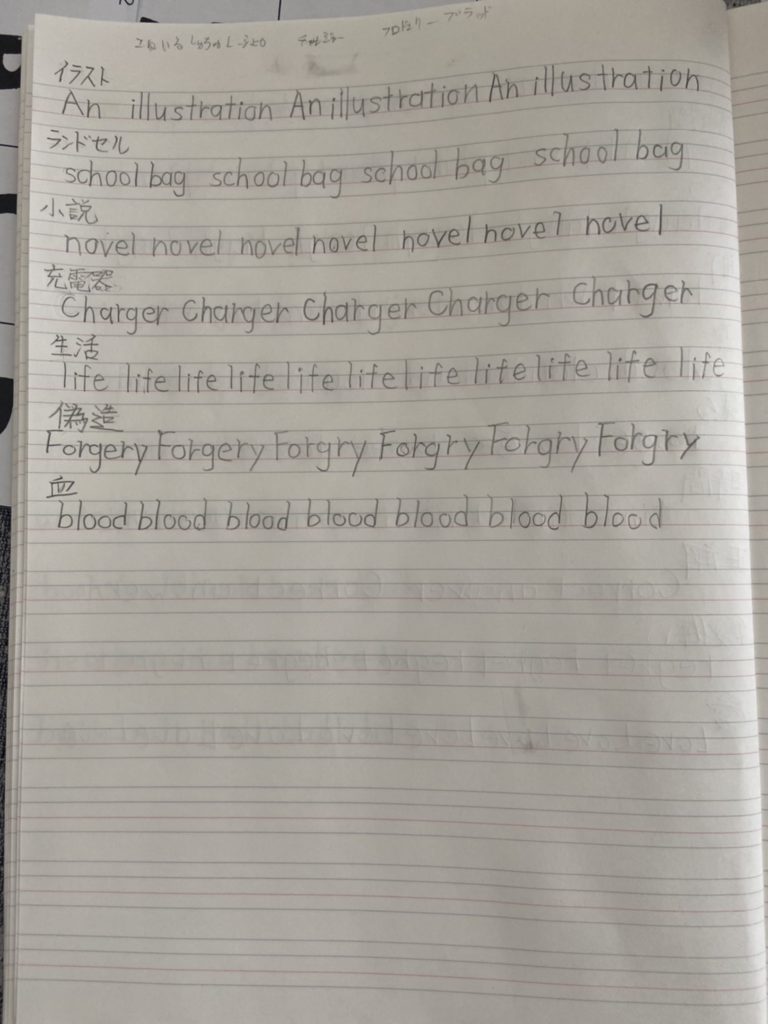 イラスト
An illustration An illustration An illustration
ランドセル
school bag school bag school bag school bag
小説
novel novel novel novel novel novel novel
充電器
Charger Charger Charger Charger Charger
生活
life life life life life life life life life life life
偽造
Forgery Forgery Forgry Forgry Forgry Forgry
血
blood blood blood blood blood blood blood